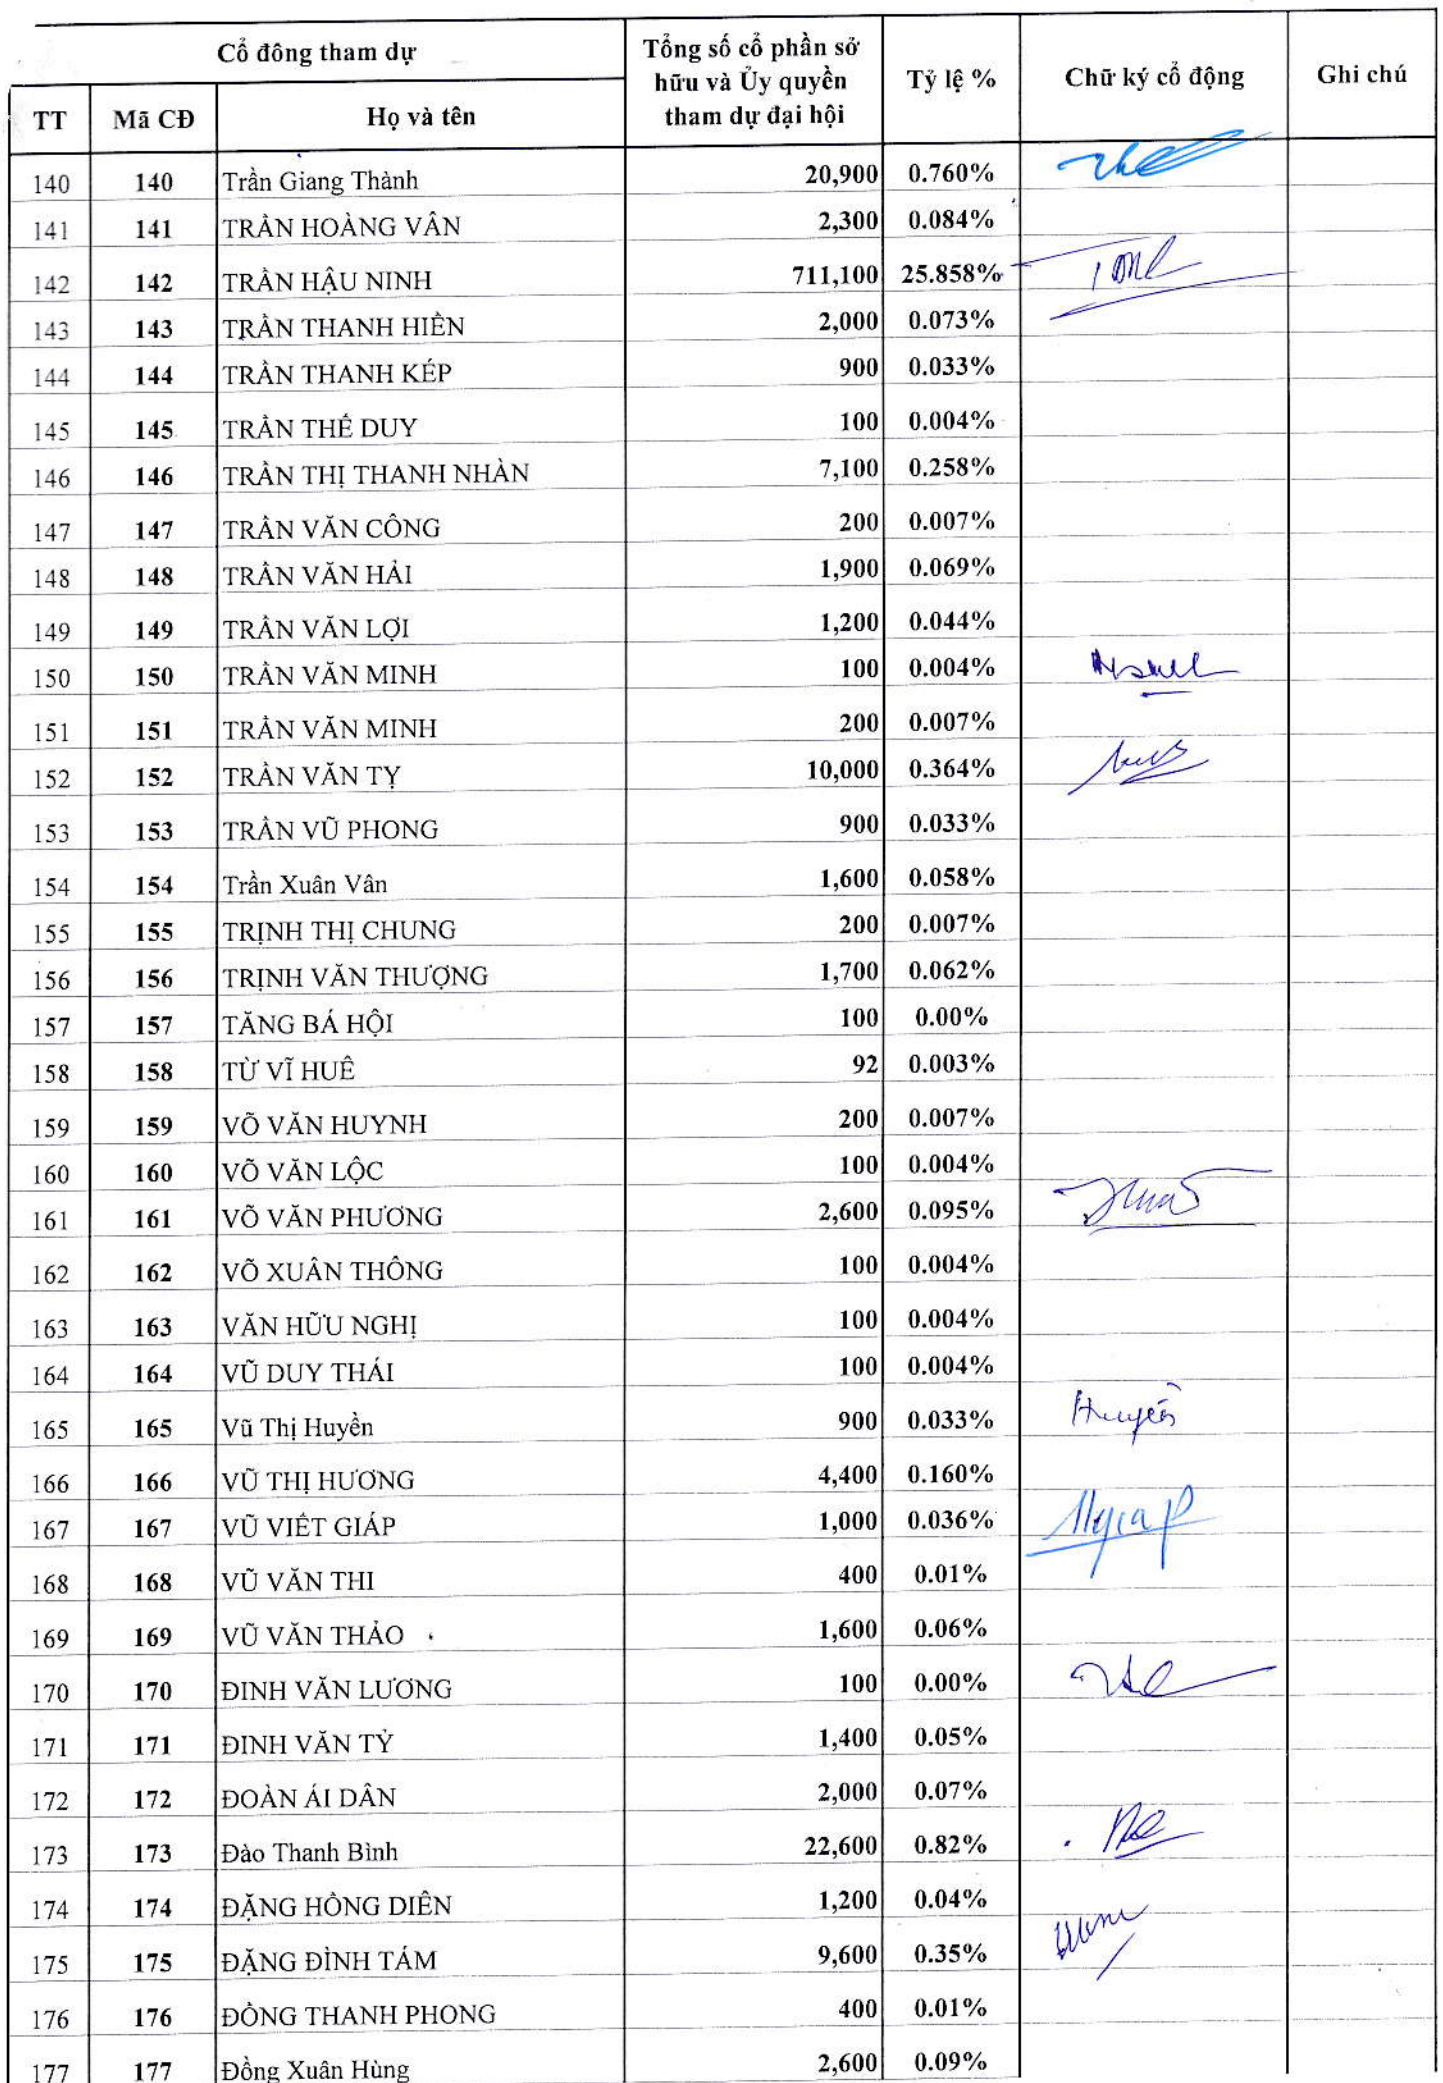 Cổ đông tham dự
Tổng số cổ phần sở hữu và Ủy quyền tham dự đại hội
Tỷ lệ %
Chữ ký cổ động
Ghi chú
TT Mã CĐ Họ và tên
140 140 Trần Giang Thành 20,900 0.760%
141 141 TRẦN HOÀNG VÂN 2,300 0.084%
142 142 TRẦN HẬU NINH 711,100 25.858%
143 143 TRẦN THANH HIỀN 2,000 0.073%
144 144 TRẦN THANH KÉP 900 0.033%
145 145 TRẦN THẾ DUY 100 0.004%
146 146 TRẦN THỊ THANH NHÀN 7,100 0.258%
147 147 TRẦN VĂN CÔNG 200 0.007%
148 148 TRẦN VĂN HẢI 1,900 0.069%
149 149 TRẦN VĂN LỢI 1,200 0.044%
150 150 TRẦN VĂN MINH 100 0.004%
151 151 TRẦN VĂN MINH 200 0.007%
152 152 TRẦN VĂN TỴ 10,000 0.364%
153 153 TRẦN VŨ PHONG 900 0.033%
154 154 Trần Xuân Vân 1,600 0.058%
155 155 TRỊNH THỊ CHUNG 200 0.007%
156 156 TRỊNH VĂN THƯỢNG 1,700 0.062%
157 157 TĂNG BÁ HỘI 100 0.00%
158 158 TỪ VĨ HUÊ 92 0.003%
159 159 VÕ VĂN HUYNH 200 0.007%
160 160 VÕ VĂN LỘC 100 0.004%
161 161 VÕ VĂN PHƯƠNG 2,600 0.095%
162 162 VÕ XUÂN THÔNG 100 0.004%
163 163 VĂN HỮU NGHỊ 100 0.004%
164 164 VŨ DUY THÁI 100 0.004%
165 165 Vũ Thị Huyền 900 0.033% Huyền
166 166 VŨ THỊ HƯƠNG 4,400 0.160%
167 167 VŨ VIẾT GIÁP 1,000 0.036%
168 168 VŨ VĂN THI 400 0.01%
169 169 VŨ VĂN THẢO 1,600 0.06%
170 170 ĐINH VĂN LƯƠNG 100 0.00%
171 171 ĐINH VĂN TỶ 1,400 0.05%
172 172 ĐOÀN ÁI DÂN 2,000 0.07%
173 173 Đào Thanh Bình 22,600 0.82%
174 174 ĐẶNG HỒNG DIÊN 1,200 0.04%
175 175 ĐẶNG ĐÌNH TÁM 9,600 0.35%
176 176 ĐỒNG THANH PHONG 400 0.01%
177 177 Đồng Xuân Hùng 2,600 0.09%